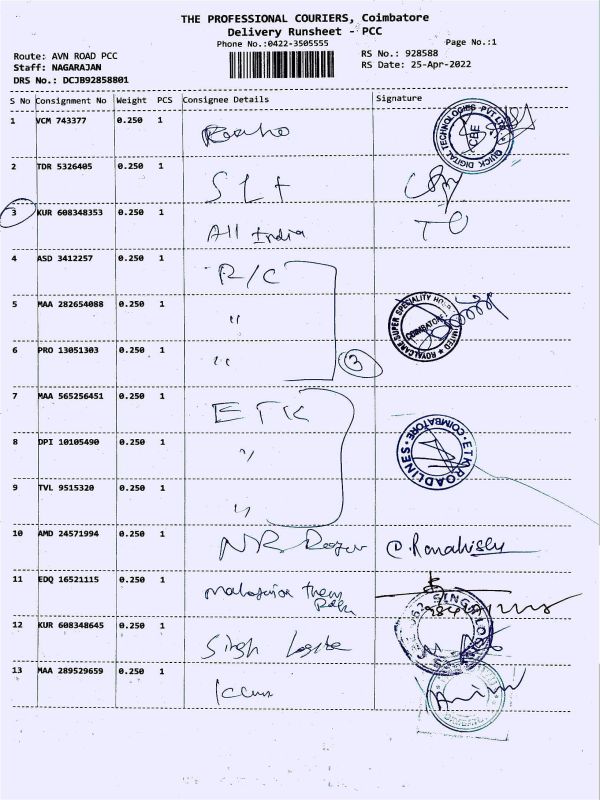 THE PROFESSIONAL COURIERS, Coimbatore
Delivery Runsheet - PCC
Phone No.:0422-3505555
Page No.:1
Route: AVN ROAD PCC
RS No.: 928588
Staff: NAGARAJAN
RS Date: 25-Apr-2022
DRS No.: DCJB92858801
S No Consignment No Weight PCS Consignee Details Signature
1 VCM 743377 0.250 1
QUICK DIGITAL TECHNOLOGIES PVT LTD
CBE
2 TDR 5326405 0.250 1
3 KUR 608348353 0.250 1 All India
4 ASD 3412257 0.250 1 R/C
5 MAA 282654088 0.250 1 "
ROYALCARE SUPER SPECIALITY
COIMBATORE
6 PRO 13051303 0.250 1 "
3
7 MAA 565256451 0.250 1 ETK
8 DPI 10105490 0.250 1 "
ETK ROADLINES COIMBATORE
9 TVL 9515320 0.250 1 "
10 AMD 24571994 0.250 1 NR
11 EDQ 16521115 0.250 1
12 KUR 608348645 0.250 1 Singh
13 MAA 289529659 0.250 1